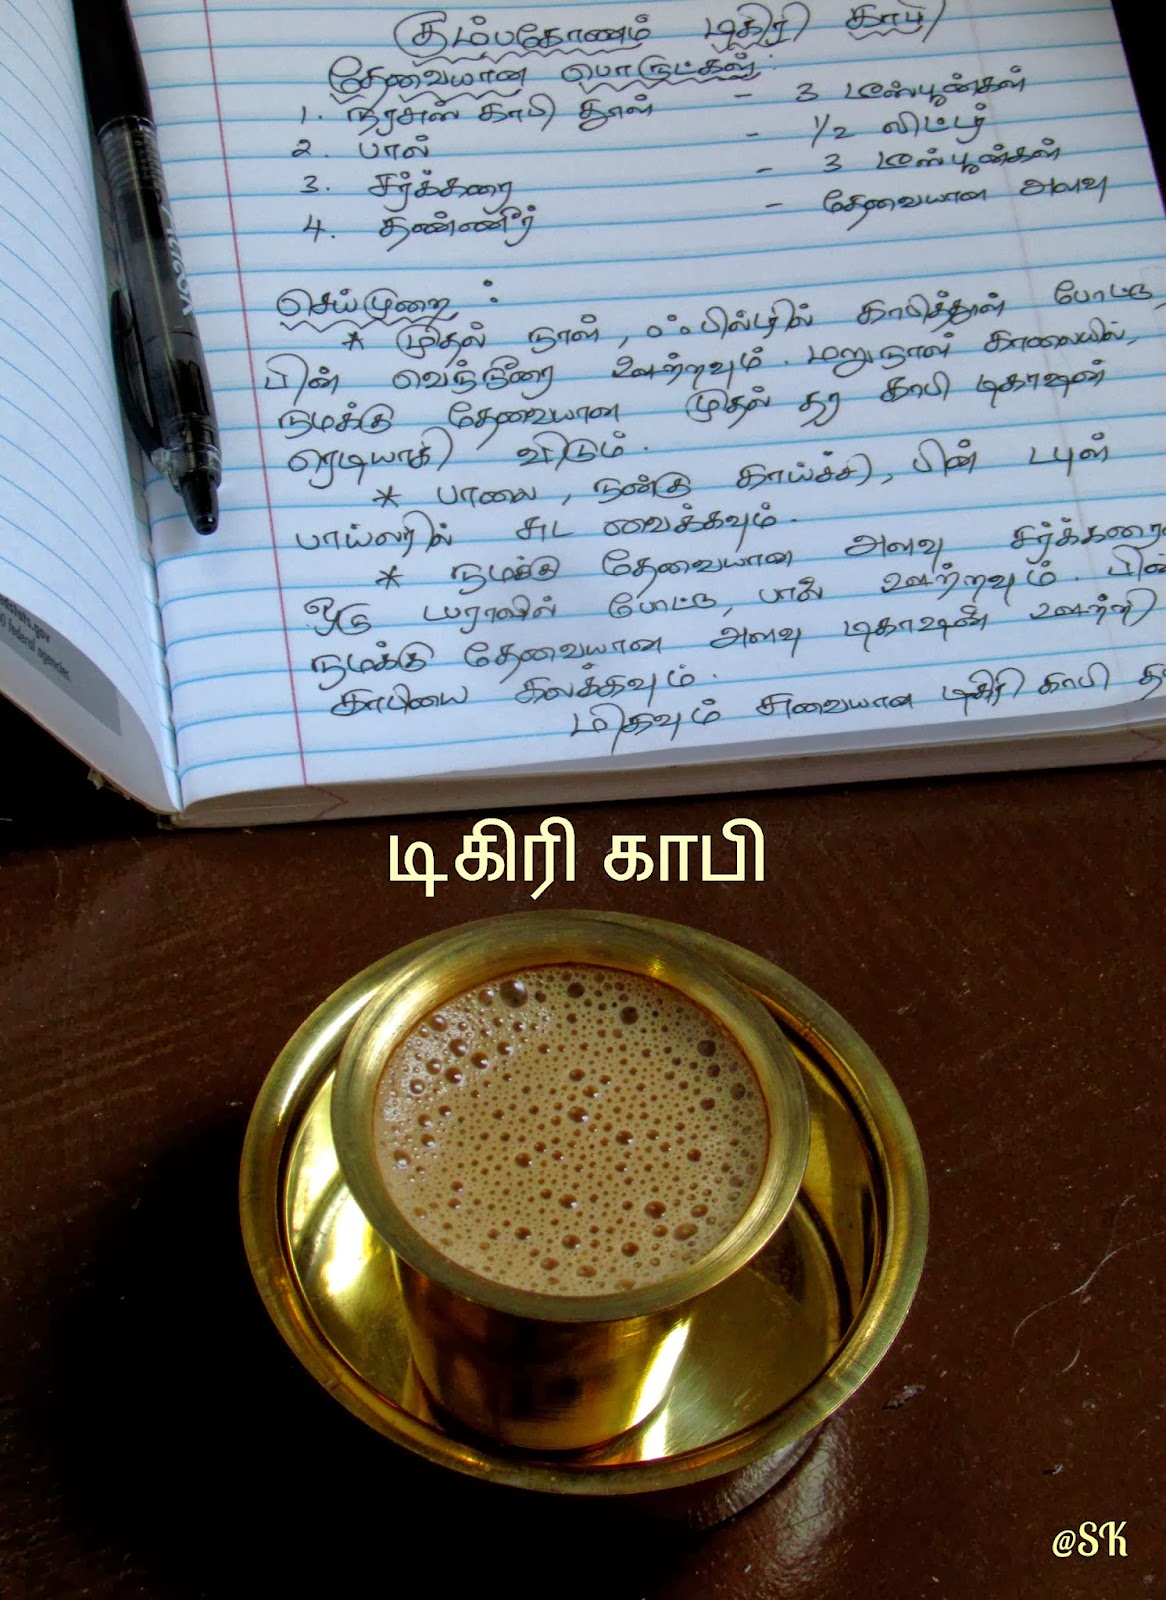 கும்பகோணம் டிகிரி காபி
தேவையான பொருட்கள் :
1. நரசுஸ் காபி தூள் - 3 டீஸ்பூன்கள்
2. பால் - 1/2 லிட்டர்
3. சர்க்கரை - 3 டீஸ்பூன்கள்
4. தண்ணீர் - தேவையான அளவு
செய்முறை :
* முதல் நாள், ஃபில்டரில் காபித்தூள் போட்டு,
பின் வெந்நீரை ஊற்றவும். மறுநாள் காலையில்,
நமக்கு தேவையான முதல் தர காபி டிகாஷன்
ரெடியாகி விடும்.
* பாலை, நன்கு காய்ச்சி, பின் டபுள்
பாய்லரில் சுட வைக்கவும்.
* நமக்கு தேவையான அளவு சர்க்கரை
ஒரு டபராவில் போட்டு, பால் ஊற்றவும். பின்
நமக்கு தேவையான அளவு டிகாஷன் ஊற்றி
காபியை கலக்கவும்.
மிகவும் சுவையான டிகிரி காபி
டிகிரி காபி
federal agencies
@SK